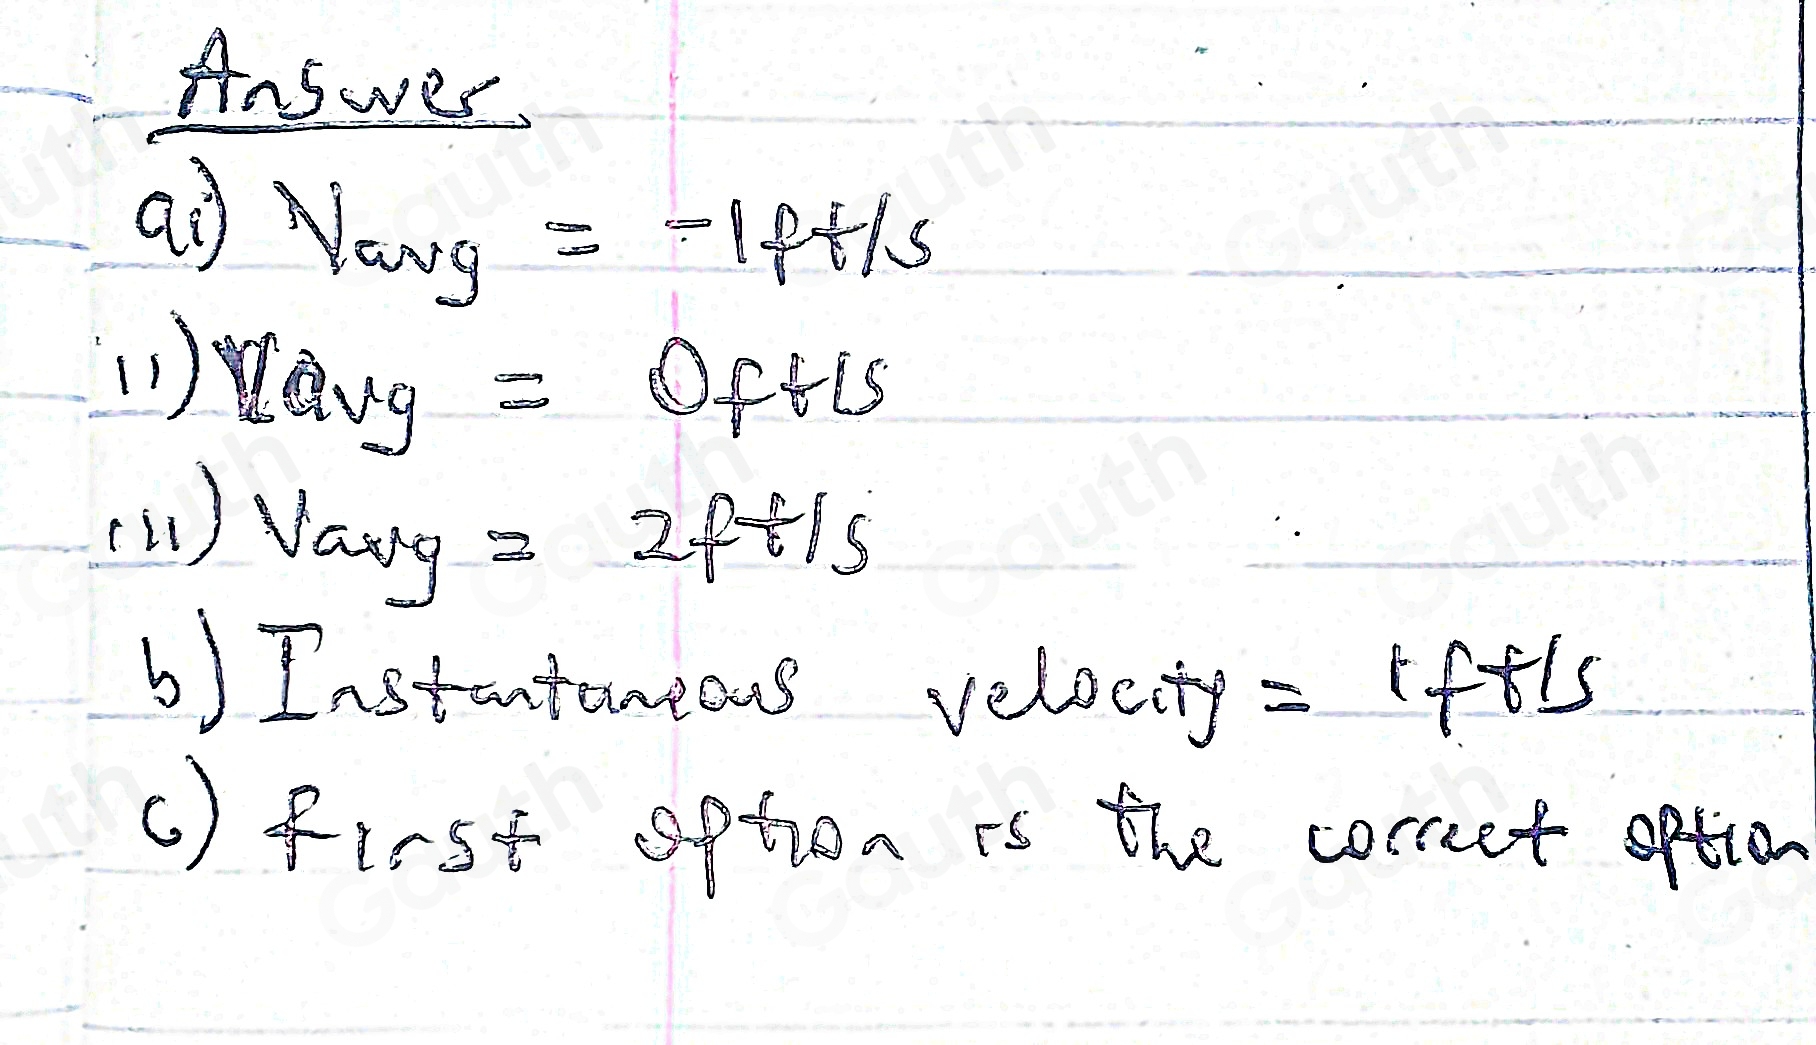 Answer
ai) Vavg = -1ft/s
ii) Vavg = 0ft/s
iii) Vavg = 2ft/s
b) Instantaneous velocity = 1ft/s
c) first option is the correct option